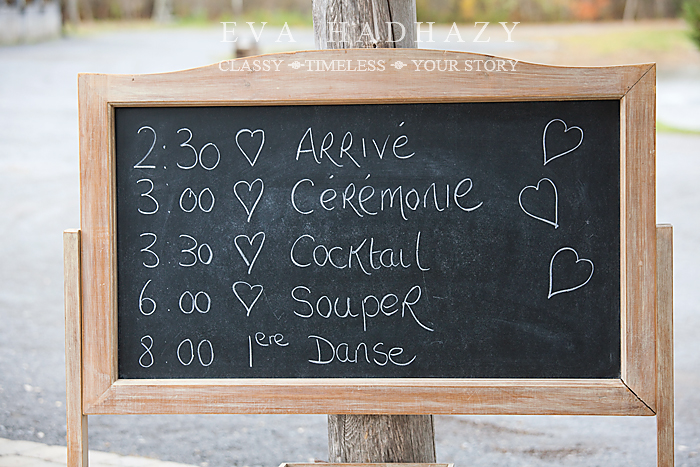 EVA HADHAZY
CLASSY TIMELESS YOUR STORY
2:30 ♡ ARRIVÉ
3:00 ♡ CÉRÉMONIE
3:30 ♡ COCKTAIL
6:00 ♡ SOUPER
8:00 1ere DANSE